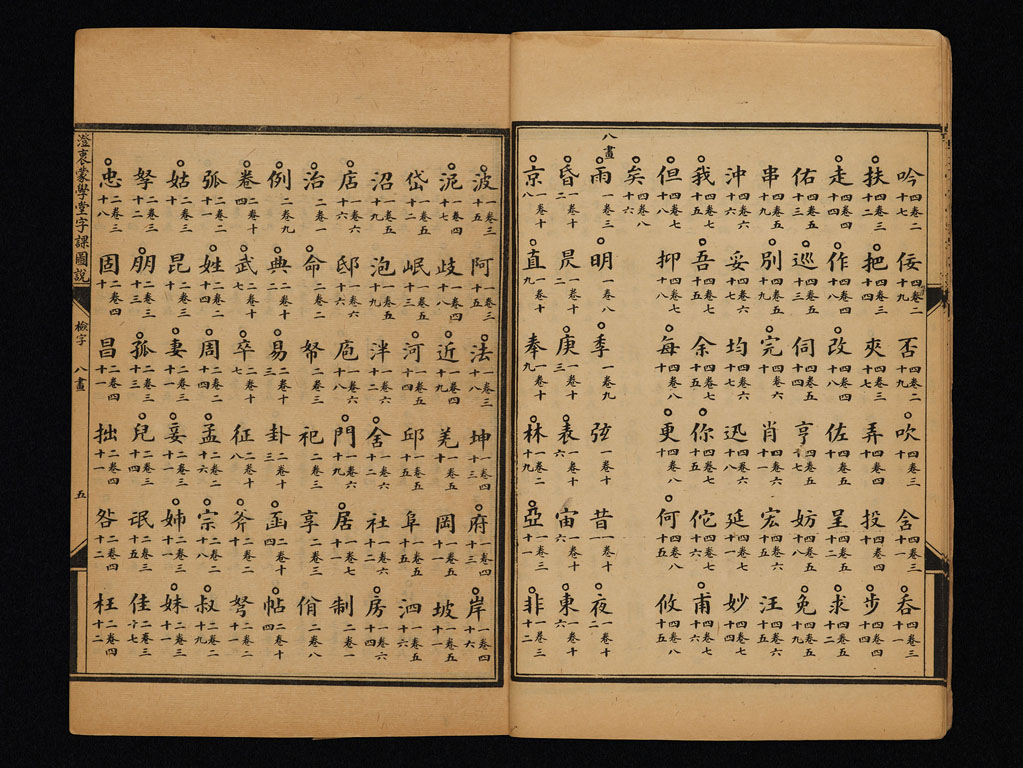 吟四卷二十七 佞四卷二十九 否四卷二十九 吹四卷三十 含四卷三十一 吞四卷三十一
扶四卷三十二 把四卷三十四 夾四卷三十七 弄四卷四十 投四卷四十 步四卷四十四
走四卷四十四 作四卷四十八 改四卷四十八 佐四卷五十 呈四卷五十二 求四卷五十二
佑四卷五十四 巡四卷五十三 伺四卷五十四 亨四卷五十七 妨四卷五十八 免四卷五十九
串四卷五十九 別四卷五十九 完四卷六十 肖四卷六十一 宏四卷六十四 汪四卷六十五
沖四卷六十五 妥四卷六十七 均四卷六十七 迅四卷六十八 延四卷七十一 妙四卷七十四
我四卷七十五 吾四卷七十五 余四卷七十五 你四卷七十五 佗四卷七十六 甫四卷七十六
但四卷七十七 抑四卷七十八 每四卷八十 更四卷八十 何四卷八十五 攸四卷八十五
矣四卷八十六
八畫
雨一卷四 明一卷八 季一卷九 弦一卷十 昔一卷十一 夜一卷十二
昏一卷十二 昃一卷十二 庚一卷十三 表一卷十六 宙一卷十六 東一卷十六
京一卷十八 直一卷十九 奉一卷十九 林一卷二十九 亞一卷三十一 非一卷三十二
波一卷三十五 阿一卷三十五 法一卷三十八 坤一卷四十三 府一卷四十三 岸一卷四十六
泥一卷四十七 歧一卷四十八 近一卷四十九 羌一卷五十 岡一卷五十一 坡一卷五十一
岱一卷五十二 岷一卷五十三 河一卷五十四 邱一卷五十五 阜一卷五十五 泗一卷五十六
沼一卷五十九 泡一卷五十九 泮一卷六十二 舍一卷六十二 社一卷六十二 房一卷六十四
店一卷六十六 邸一卷六十六 庖一卷六十八 門一卷六十九 居一卷七十一 制二卷一
治二卷一 命二卷二 帑二卷三 祀二卷三 享二卷三 佾二卷八
例二卷九 典二卷十二 易二卷十三 卦二卷十三 函二卷十四 帖二卷十四
卷二卷十四 武二卷十七 卒二卷十七 征二卷十八 斧二卷二十 弩二卷二十一
弧二卷二十一 姓二卷二十四 周二卷二十四 孟二卷二十六 宗二卷二十八 叔二卷二十九
姑二卷三十 昆二卷三十 妻二卷三十一 妾二卷三十一 姊二卷三十一 妹二卷三十一
孥二卷三十二 朋二卷三十三 孤二卷三十三 兒二卷三十四 氓二卷三十五 佳二卷三十七
忠二卷三十八 固二卷四十 昌二卷四十一 拙二卷四十一 咎二卷四十二 枉二卷四十二
澄衷蒙學堂字課圖說 檢字 八畫 五